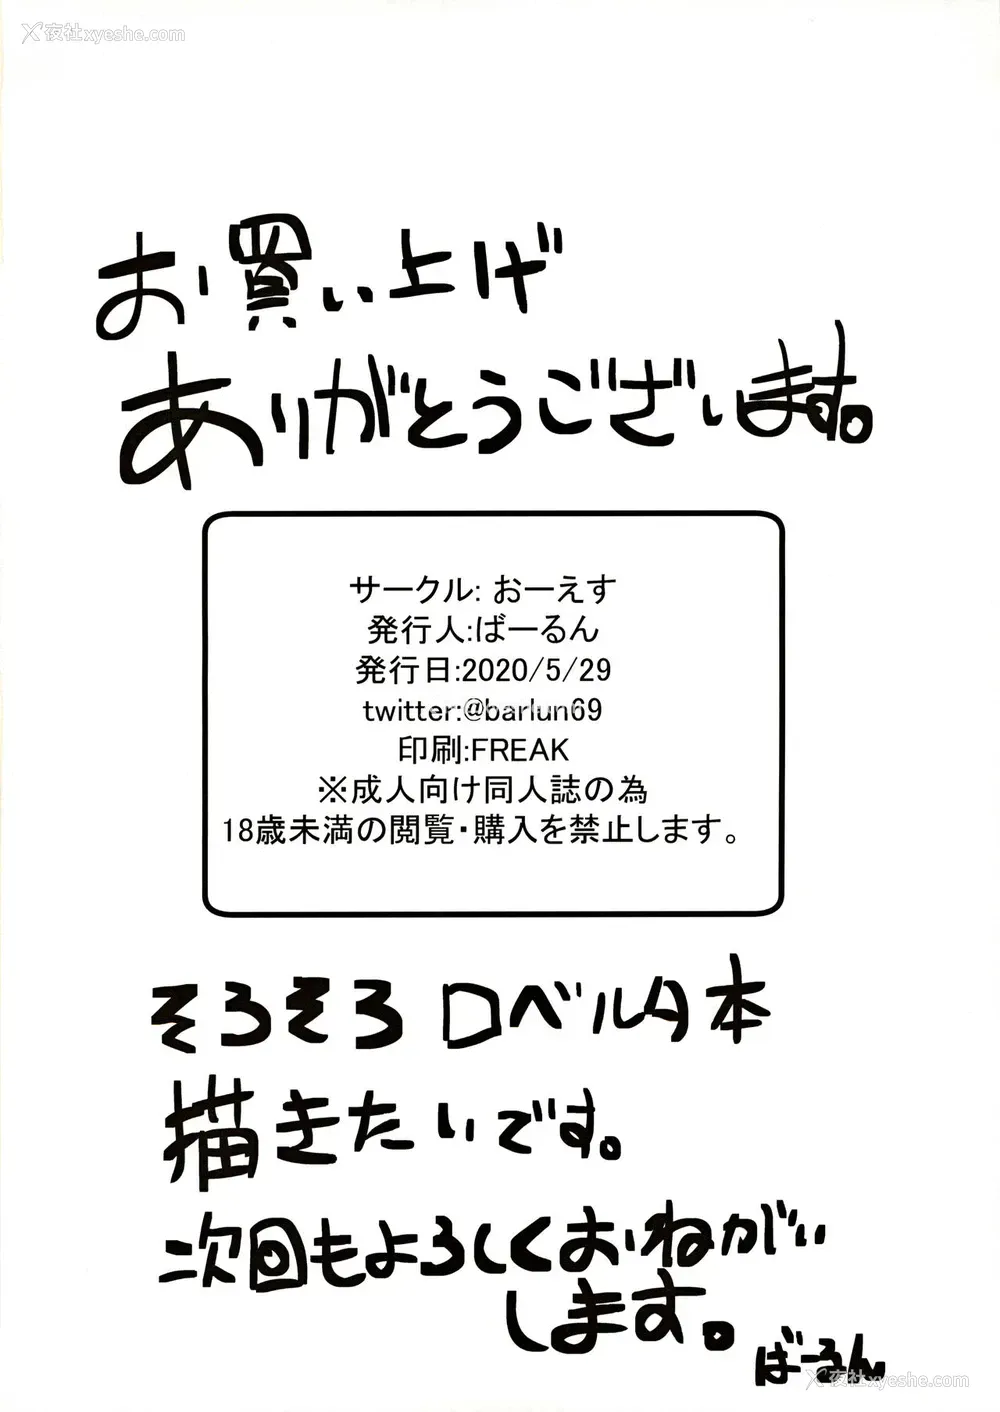 夜社xyeshe.com
お買い上げ
ありがとうございます。
サークル: おーえす
発行人:ばーるん
発行日:2020/5/29
twitter:@barlun69
印刷:FREAK
※成人向け同人誌の為
18歳未満の閲覧・購入を禁止します。
そろそろ ロベルタ本
描きたいです。
次回もよろしくおねがい
します。
ばーるん
夜社xyeshe.com